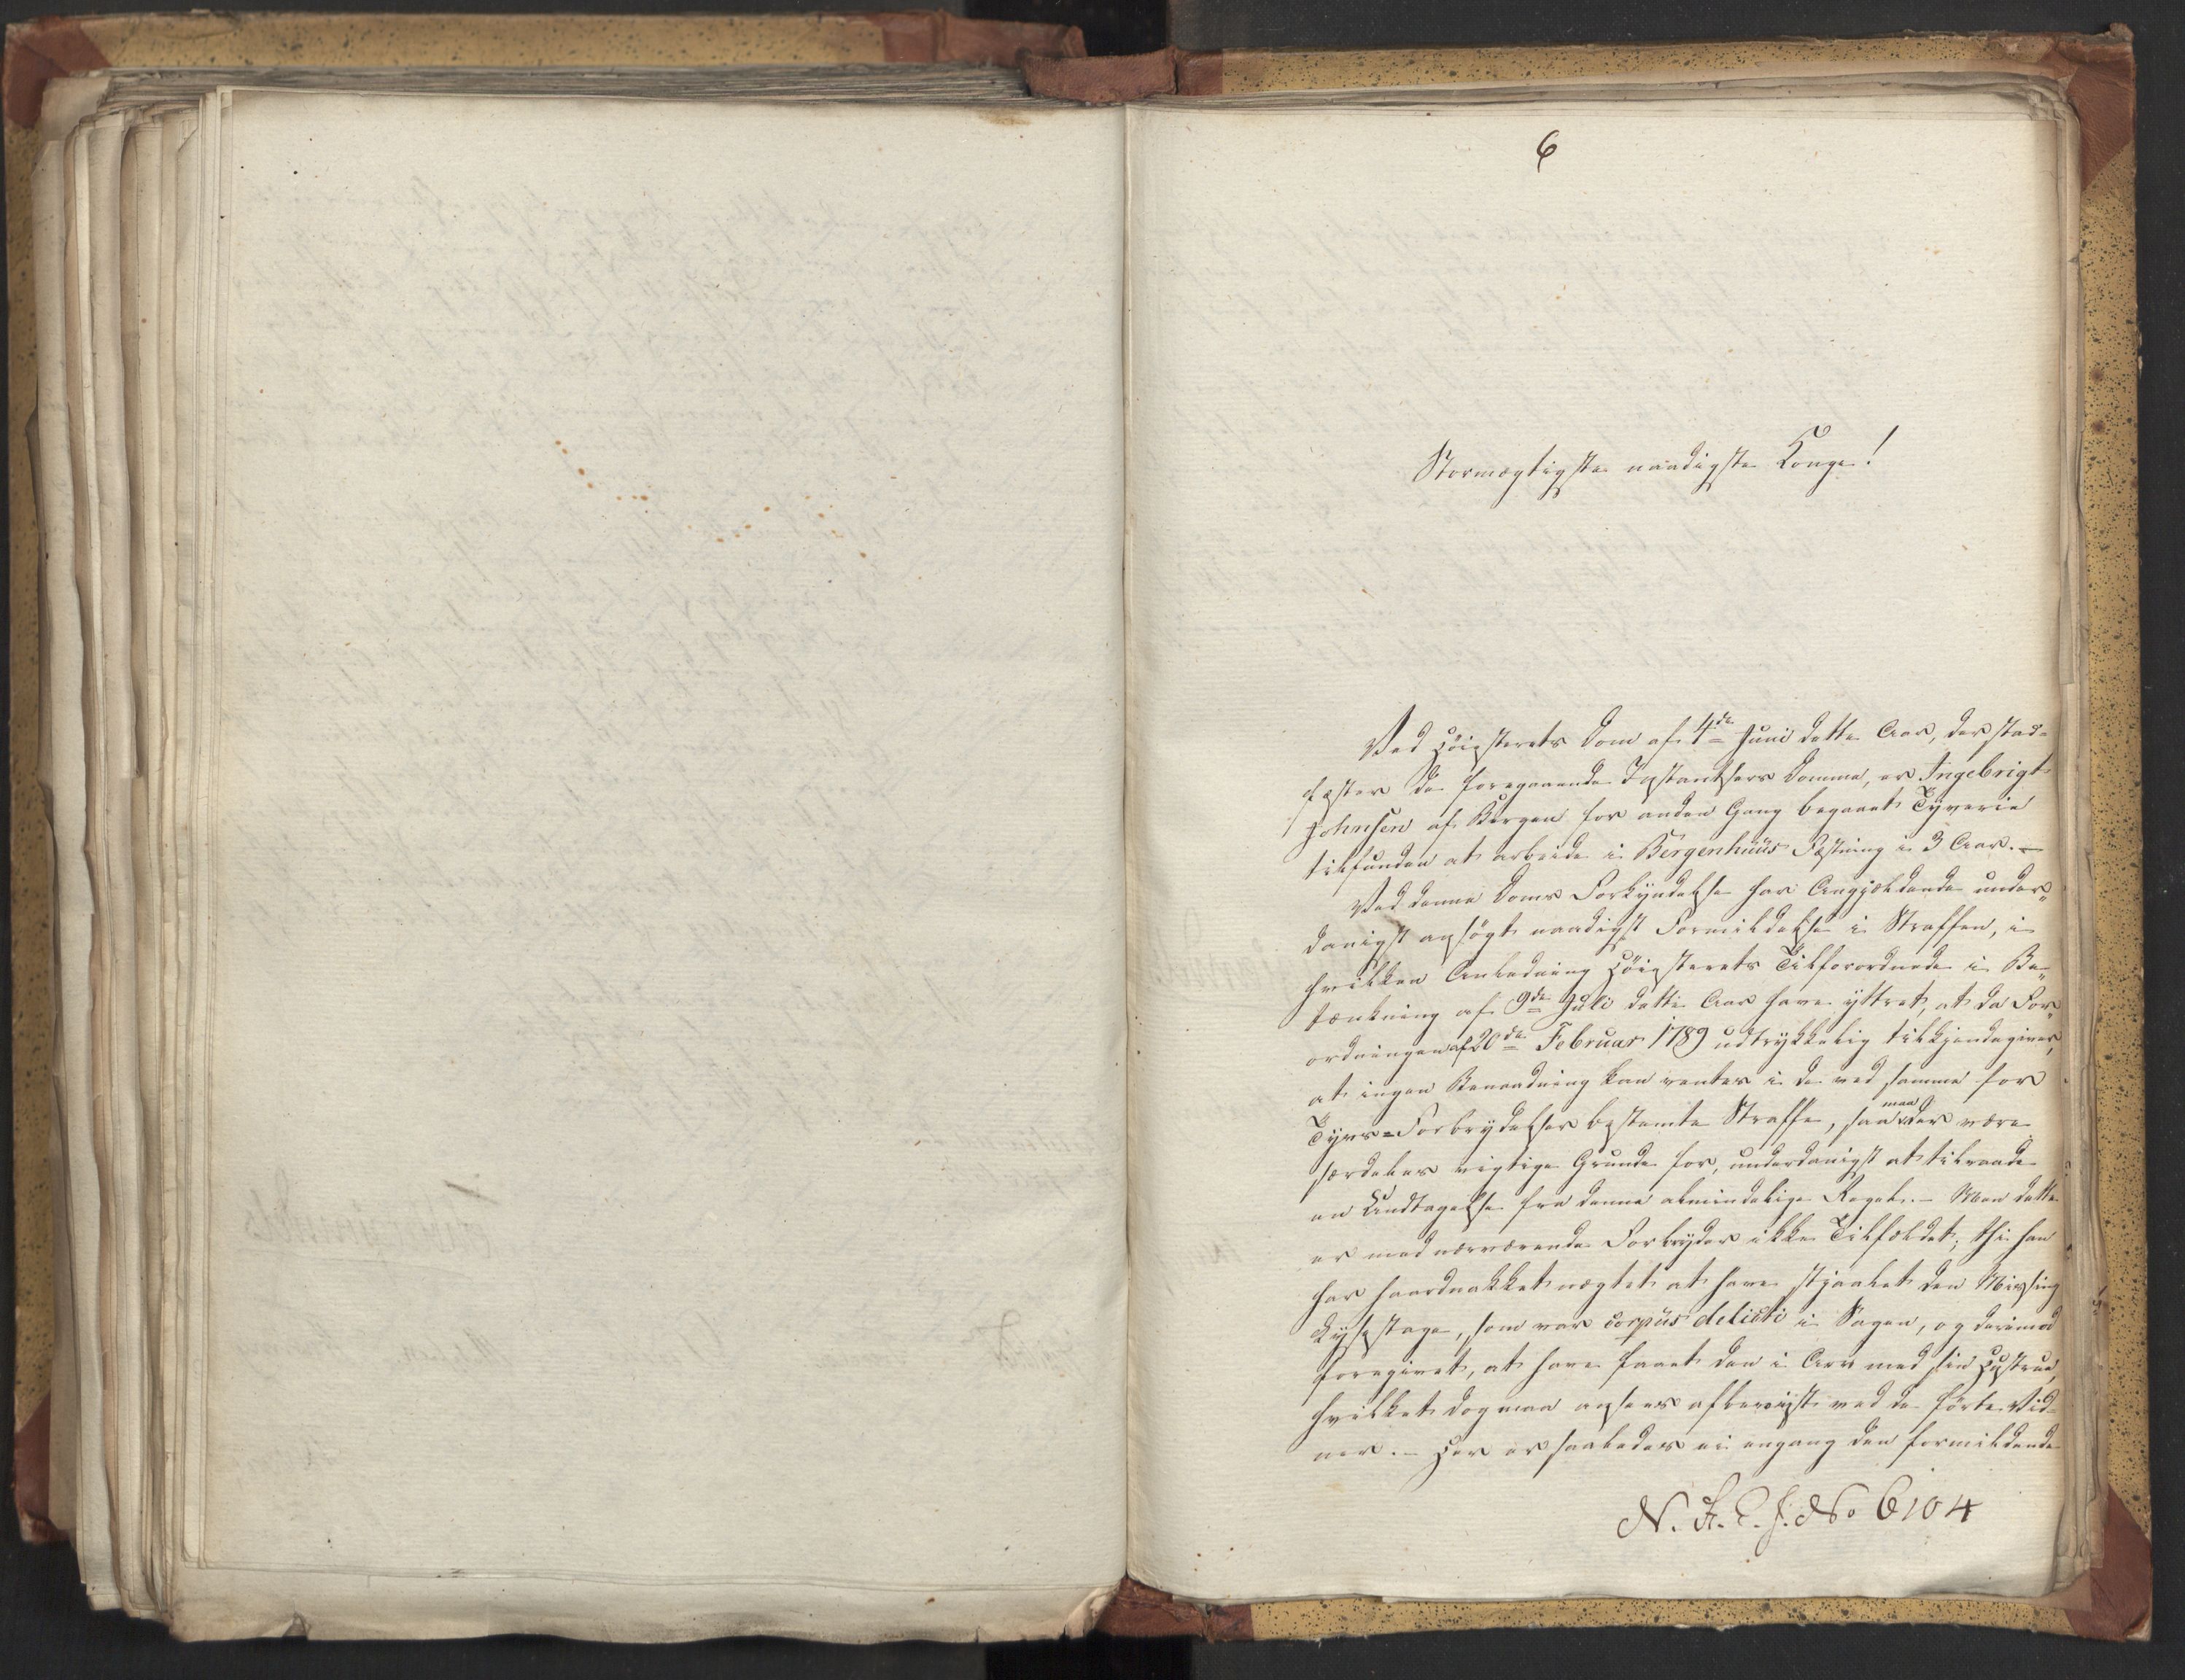 6
Stormægtigste naadigste Konge!
Ved Høiesterets Dom af 4de Juni dette Aar, der stad-
fæster de foregaaende Instantsers Domme, er Ingebrigt
Johnsen af Bergen for anden Gang begaaet Tyverie
tilfunden at arbeide i Bergenhuus Fæstning i 3 Aar. –
Ved denne Doms Forkyndelse har Angjældende under„
danigst ansøgt naadigst Formildelse i Straffen, i
hvilken Anledning Høiesterets Tilforordnede i Be„
tænkning af 9de Juli dette Aar have yttret, at da For„
ordningen af 20de Februar 1789 udtrykkelig tilkjendegiver,
at ingen Benaadning kan ventes i de ved samme for
Tyvs-Forbrydelser bestemte Straffe, saa maa der være
særdeles vigtige Grunde for, underdanigst at tilraade
en Undtagelse fra denne almindelige Regel. – Men dette
er med nærværende Forbryder ikke Tilfældet; thi han
har haardnakket nægtet at have stjaalet den Messing
Lysestage, som var corpus delicti i Sagen, og derimod
foregivet, at have faaet den i Arv med sin Hustrue,
hvilket dog maa ansees afbeviist ved de førte Vid
ner. – Her er saaledes ei engang den formildende
N. R. C. J. No 6104